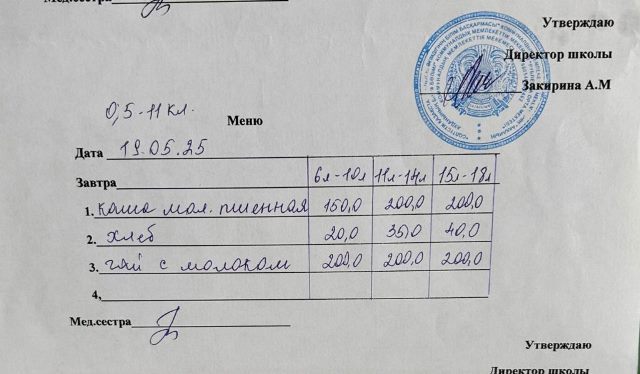 Мед.сестра
Утверждаю
Директор школы
Закирина А.М
0,5-11 кл.
Меню
Дата 19.05.25
Завтра 6л-10л 11л-14л 15л-18л
1. каша мол. пшенная 150,0 200,0 200,0
2. хлеб 20,0 35,0 40,0
3. чай с молоком 200,0 200,0 200,0
4,
Мед.сестра
Утверждаю
Директор школы